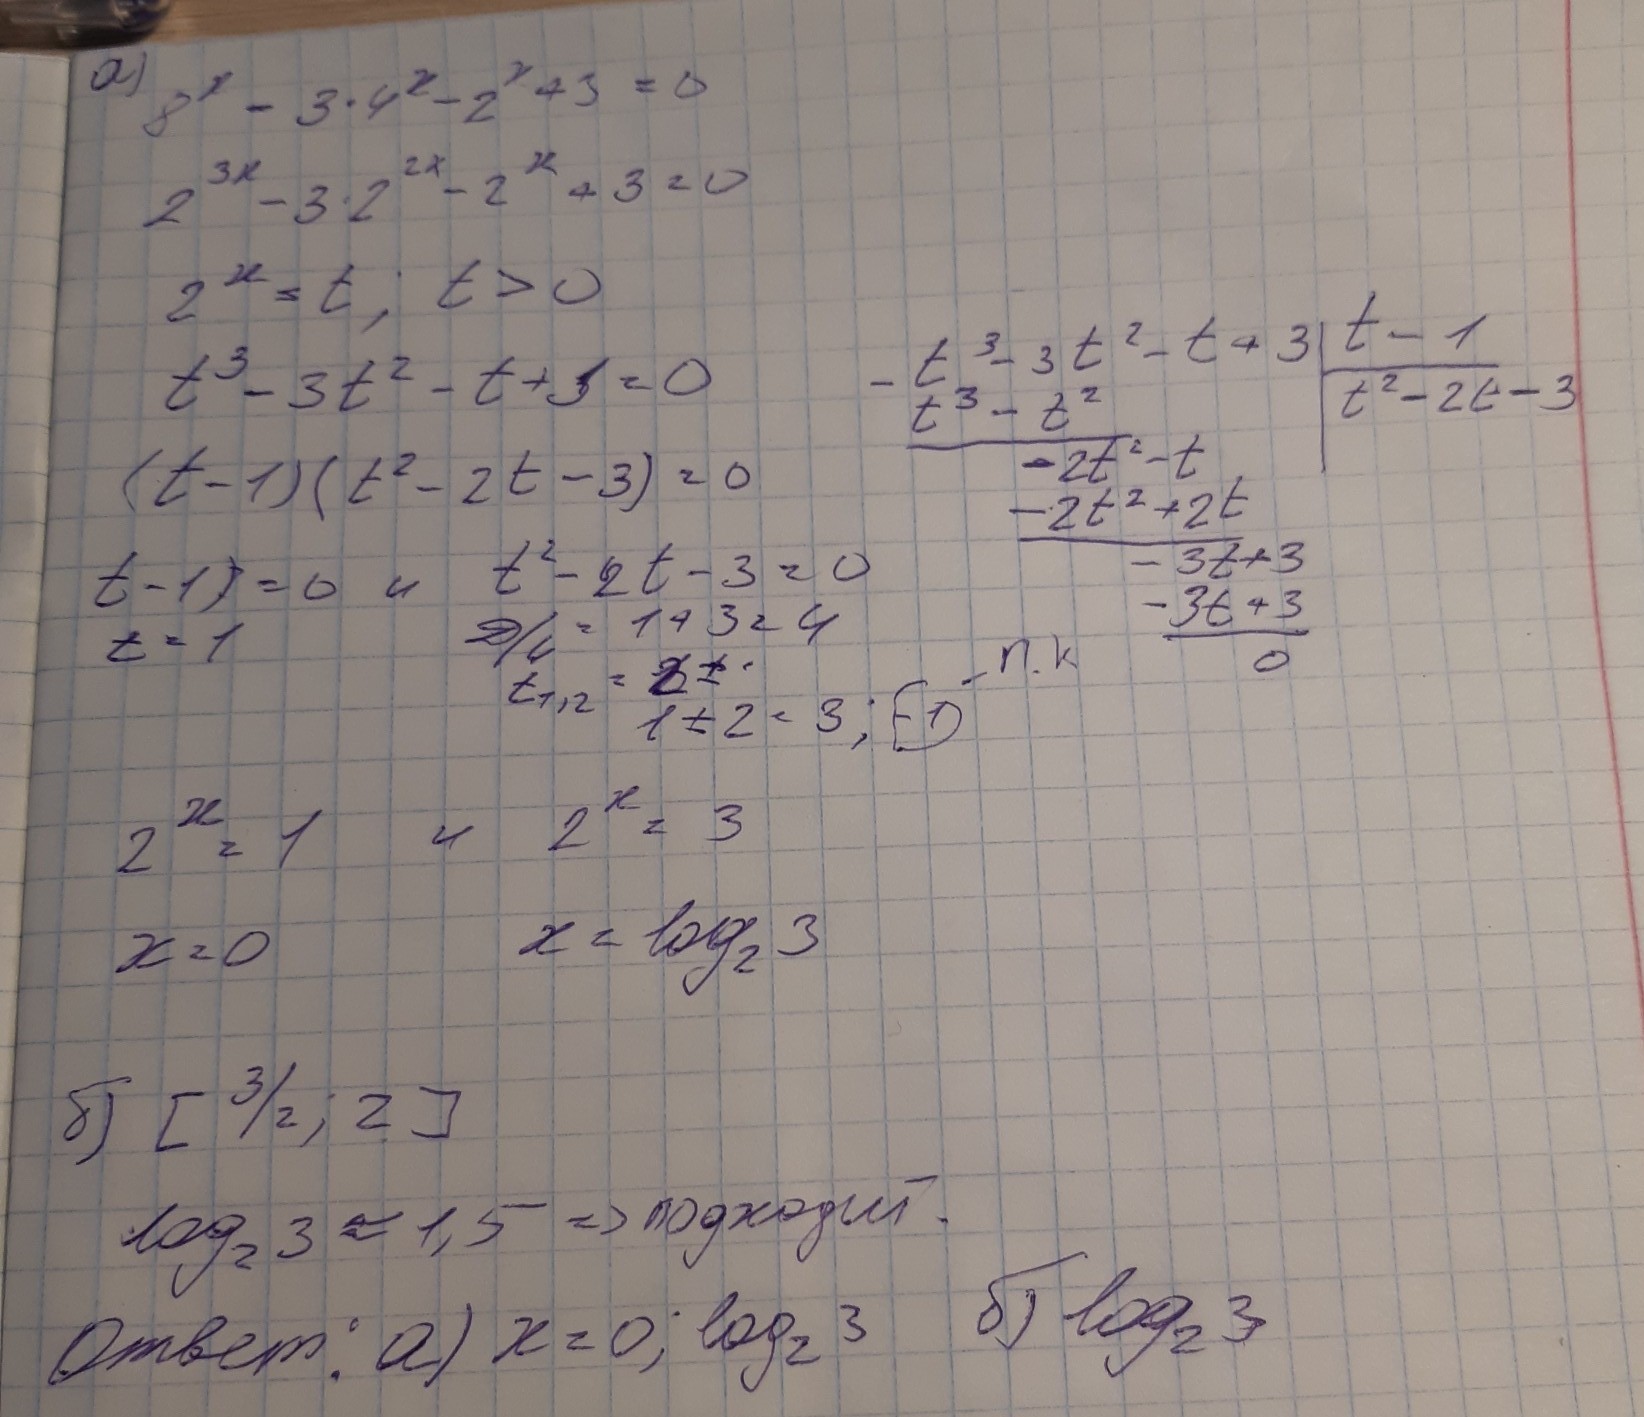 а)
8^x - 3·4^x - 2^x + 3 = 0
2^{3x} - 3·2^{2x} - 2^x + 3 = 0
2^x = t; t > 0
t^3 - 3t^2 - t + 3 = 0
(t - 1)(t^2 - 2t - 3) = 0
t - 1) = 0 и t^2 - 2t - 3 = 0
t = 1
D/4 = 1 + 3 = 4
t_{1,2} = 2 ±
1 ± 2 = 3; (-1) - п.к
- t^3 - 3t^2 - t + 3 | t - 1
t^3 - t^2 | t^2 - 2t - 3
-2t^2 - t
-2t^2 + 2t
-3t + 3
-3t + 3
0
2^x = 1 и 2^x = 3
x = 0 x = log_2 3
б) [3/2; 2]
log_2 3 ≈ 1,5 => подходит.
Ответ: а) x = 0; log_2 3 б) log_2 3